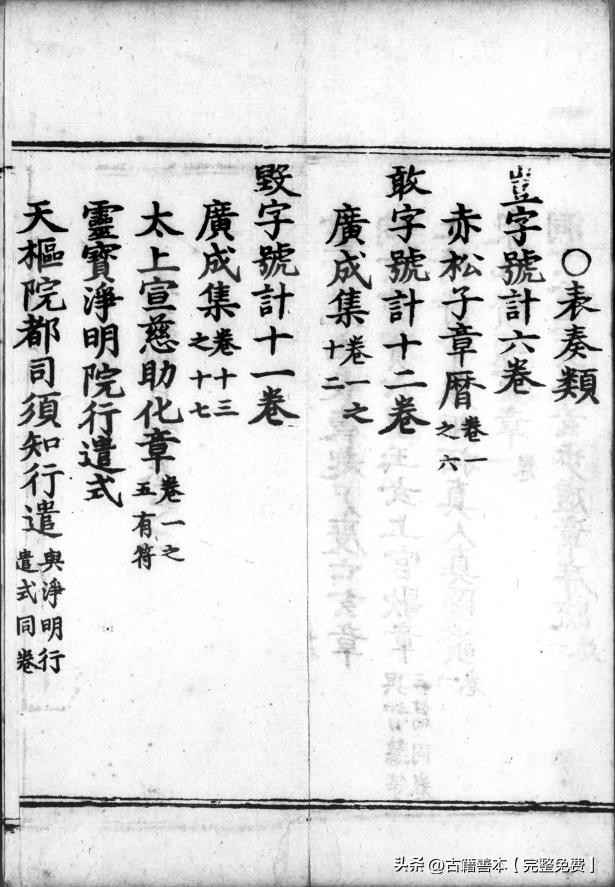 ○表奏類
豈字號計六卷
赤松子章曆卷一之六
敢字號計十二卷
廣成集卷一之十二
毀字號計十一卷
廣成集卷十三之十七
太上宣慈助化章卷一之五有符
靈寶淨明院行遣式
天樞院都司須知行遣與淨明行遣式同卷
头条@古籍善本【完整免费】